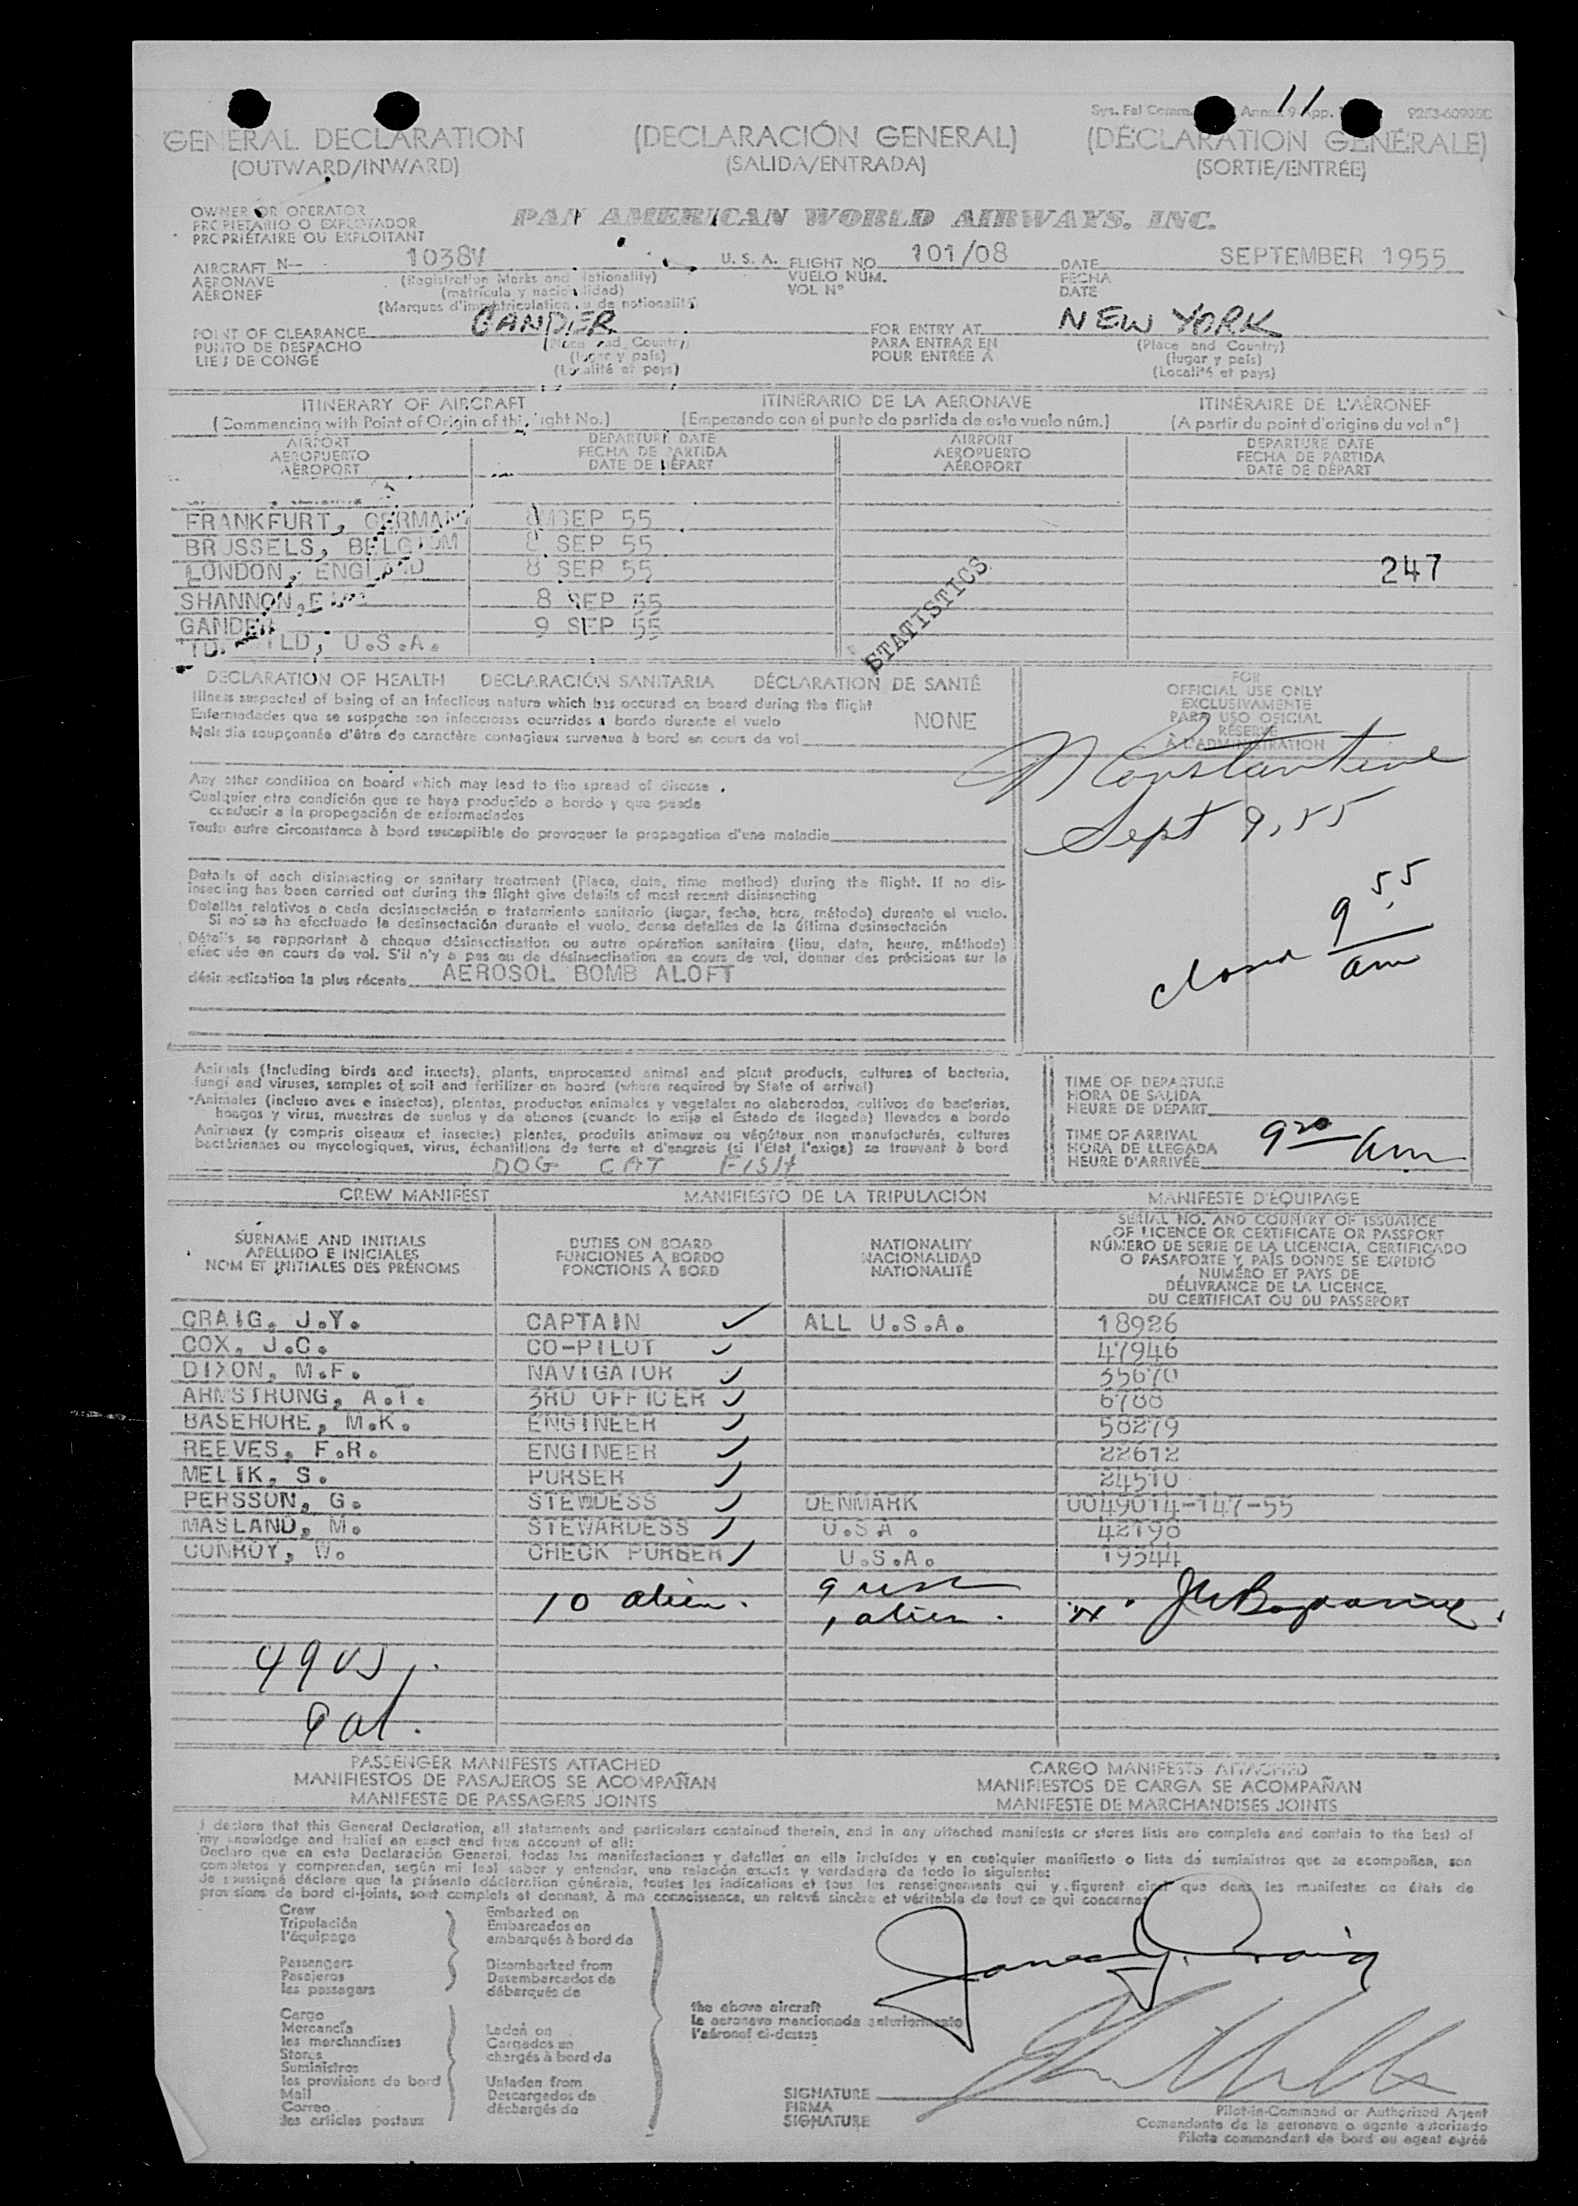 11
Sys. Fal Comm. Annex 9 App.
GENERAL DECLARATION (DECLARACIÓN GENERAL) (DÉCLARATION GÉNÉRALE)
(OUTWARD/INWARD) (SALIDA/ENTRADA) (SORTIE/ENTRÉE)
OWNER OR OPERATOR
PROPIETARIO O EXPLOTADOR
PROPRIÉTAIRE OU EXPLOITANT
PAN AMERICAN WORLD AIRWAYS, INC.
AIRCRAFT N— 1038V U. S. A. FLIGHT NO. 101/08 DATE SEPTEMBER 1955
AERONAVE (Registration Marks and Nationality) VUELO NÚM. FECHA
AÉRONEF (matrícula y nacionalidad) VOL Nº DATE
(Marques d'immatriculation ou de nationalité)
POINT OF CLEARANCE GANDER FOR ENTRY AT NEW YORK
PUNTO DE DESPACHO (Place and Country) PARA ENTRAR EN (Place and Country)
LIEU DE CONGÉ (lugar y país) POUR ENTRÉE À (lugar y país)
(Localité et pays) (Localité et pays)
ITINERARY OF AIRCRAFT ITINERARIO DE LA AERONAVE ITINÉRAIRE DE L'AÉRONEF
(Commencing with Point of Origin of this Flight No.) (Empezando con el punto de partida de este vuelo núm.) (A partir du point d'origine du vol nº)
AIRPORT DEPARTURE DATE AIRPORT DEPARTURE DATE
AEROPUERTO FECHA DE PARTIDA AEROPUERTO FECHA DE PARTIDA
AÉROPORT DATE DE DÉPART AÉROPORT DATE DE DÉPART
FRANKFURT, GERMANY 8 SEP 55
BRUSSELS, BELGIUM 8 SEP 55
LONDON, ENGLAND 8 SEP 55 247
SHANNON, 8 SEP 55
GANDER 9 SEP 55
U.S.A.
STATISTICS
DECLARATION OF HEALTH DECLARACIÓN SANITARIA DÉCLARATION DE SANTÉ
Illness suspected of being of an infectious nature which has occured on board during the flight
Enfermedades que se sospecha son infecciosas ocurridas a bordo durante el vuelo NONE
Maladie soupçonnée d'être de caractère contagieux survenue à bord en cours de vol
FOR
OFFICIAL USE ONLY
EXCLUSIVAMENTE
PARA USO OFICIAL
RÉSERVÉ
À L'ADMINISTRATION
Constantine
Sept 9, 55
closed 9 55 am
Any other condition on board which may lead to the spread of disease
Cualquier otra condición que se haya producido a bordo y que pueda
conducir a la propagación de enfermedades
Toute autre circonstance à bord susceptible de provoquer la propagation d'une maladie
Details of each disinsecting or sanitary treatment (Place, date, time method) during the flight. If no dis-
insecting has been carried out during the flight give details of most recent disinsecting
Detalles relativos a cada desinsectación o tratamiento sanitario (lugar, fecha, hora, método) durante el vuelo.
Si no se ha efectuado la desinsectación durante el vuelo, dense detalles de la última desinsectación
Détails se rapportant à chaque désinsectisation ou autre opération sanitaire (lieu, date, heure, méthode)
effectuée en cours de vol. S'il n'y a pas eu de désinsectisation en cours de vol, donner des précisions sur la
désinsectisation la plus récente AEROSOL BOMB ALOFT
Animals (Including birds and insects), plants, unprocessed animal and plant products, cultures of bacteria,
fungi and viruses, samples of soil and fertilizer on board (where required by State of arrival)
Animales (incluso aves e insectos), plantas, productos animales y vegetales no elaborados, cultivos de bacterias,
hongos y virus, muestras de suelos y de abonos (cuando lo exija el Estado de llegada) llevados a bordo
Animaux (y compris oiseaux et insectes) plantes, produits animaux ou végétaux non manufacturés, cultures
bactériennes ou mycologiques, virus, échantillons de terre et d'engrais (si l'État l'exige) se trouvant à bord
DOG CAT FISH
TIME OF DEPARTURE
HORA DE SALIDA
HEURE DE DÉPART
TIME OF ARRIVAL
HORA DE LLEGADA
HEURE D'ARRIVÉE 9 20 am
CREW MANIFEST MANIFIESTO DE LA TRIPULACIÓN MANIFESTE D'ÉQUIPAGE
SURNAME AND INITIALS
APELLIDO E INICIALES
NOM ET INITIALES DES PRÉNOMS
DUTIES ON BOARD
FUNCIONES A BORDO
FONCTIONS À BORD
NATIONALITY
NACIONALIDAD
NATIONALITÉ
SERIAL NO. AND COUNTRY OF ISSUANCE
OF LICENCE OR CERTIFICATE OR PASSPORT
NÚMERO DE SERIE DE LA LICENCIA, CERTIFICADO
O PASAPORTE Y PAÍS DONDE SE EXPIDIÓ
NUMÉRO ET PAYS DE
DÉLIVRANCE DE LA LICENCE,
DU CERTIFICAT OU DU PASSEPORT
CRAIG, J.Y. CAPTAIN ✓ ALL U.S.A. 18926
COX, J.C. CO-PILOT ✓ 47946
DIXON, M.F. NAVIGATOR ✓ 35670
ARMSTRONG, A.T. 3RD OFFICER ✓ 6788
BASEHORE, M.K. ENGINEER ✓ 58279
REEVES, F.R. ENGINEER ✓ 22612
MELIK, S. PURSER ✓ 24510
PERSSON, G. STEWDESS ✓ DENMARK 0049014-147-55
MASLAND, M. STEWARDESS ✓ U.S.A. 42198
CONROY, W. CHECK PURSER ✓ U.S.A. 19544
10 alien. 9 usc
1 alien.
49 US
9 al.
PASSENGER MANIFESTS ATTACHED CARGO MANIFESTS ATTACHED
MANIFIESTOS DE PASAJEROS SE ACOMPAÑAN MANIFIESTOS DE CARGA SE ACOMPAÑAN
MANIFESTE DE PASSAGERS JOINTS MANIFESTE DE MARCHANDISES JOINTS
I declare that this General Declaration, all statements and particulars contained therein, and in any attached manifests or stores lists are complete and contain to the best of
my knowledge and belief an exact and true account of all:
Declaro que en esta Declaración General, todas las manifestaciones y detalles en ella incluidos y en cualquier manifiesto o lista de suministros que se acompañan, son
completos y comprenden, según mi leal saber y entender, una relación exacta y verdadera de todo lo siguiente:
Je soussigné déclare que la présente déclaration générale, toutes les indications et tous les renseignements qui y figurent ainsi que dans les manifestes ou états de
provisions de bord ci-joints, sont complets et donnent, à ma connaissance, un relevé sincère et véritable de tout ce qui concerne:
Crew
Tripulación
l'équipage
Embarked on
Embarcados en
embarqués à bord de
Passengers
Pasajeros
les passagers
Disembarked from
Desembarcados de
débarqués de
Cargo
Mercancía
les marchandises
Stores
Suministros
les provisions de bord
Mail
Correo
les articles postaux
Laden on
Cargados en
chargés à bord de
Unladen from
Descargados de
déchargés de
the above aircraft
la aeronave mencionada anteriormente
l'aéronef ci-dessus
James Y. Craig
SIGNATURE
FIRMA
SIGNATURE
Pilot-in-Command or Authorized Agent
Comandante de la aeronave o agente autorizado
Pilote commandant de bord ou agent agréé